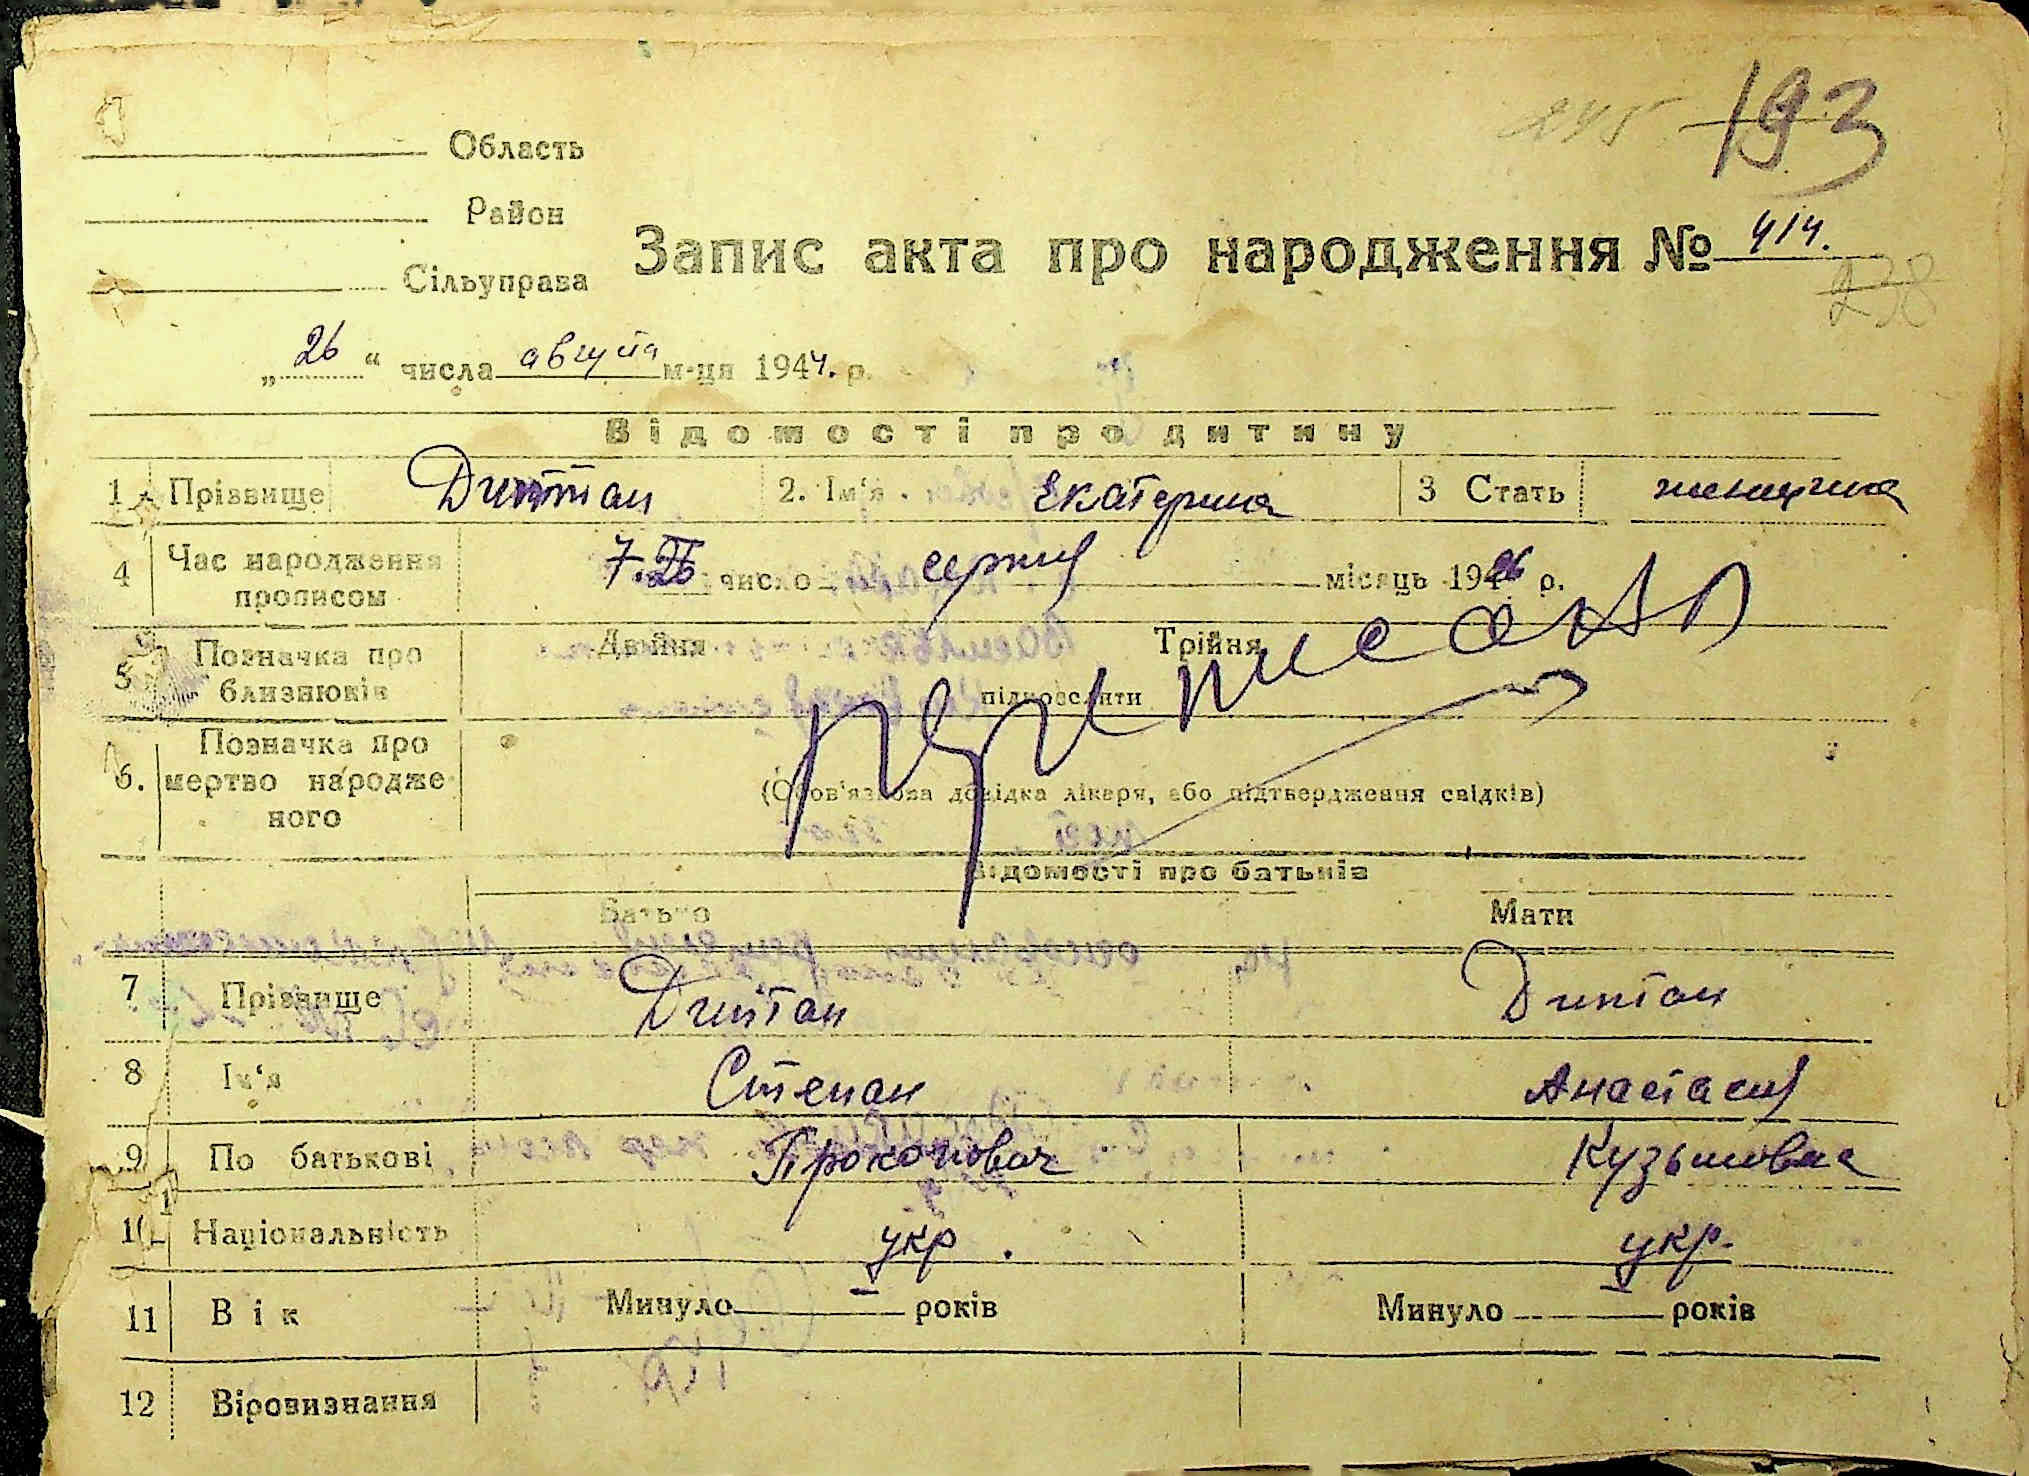 245 193
Область
Район
Сільуправа
Запис акта про народження № 414.
238
„26“ числа августа м-ця 1944. р.
Відомості про дитину
1 Прізвище 2. Ім'я Екатерина 3 Стать женщина
4 Час народження прописом 7. число серпня місяць 1926 р.
5 Позначка про близнюків Двійня Трійня
підкреслити
6. Позначка про мертво народженого
(Обов'язкова довідка лікаря, або підтвердження свідків)
Відомості про батьків
Батько Мати
7 Прізвище
8 Ім'я Степан Анастасия
9 По батькові Прокопович Кузьмовна
10 Національність укр. укр.
11 Вік Минуло — років Минуло — років
12 Віровизнання